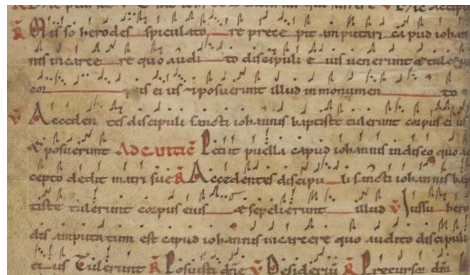 ℟ Misso herodes speculato re precepit amputari capud iohan
nis in carcere quo audito discipuli eius venerunt & tulerunt
cor us eius & posuerunt illud in monumen to
℣ Acceden tes discipuli sancti iohannis baptiste tulerunt corpus eius
& posuerunt Petiit puella capud iohannis in disco quo ac
cepto dedit matri sue ℟ Accedentes discipu li sancti iohannis bap
tiste tulerunt corpus eius & sepelierunt illud ℣ Iussu hero
dis amputatum est capud iohannis in carcere quo audito discipuli
ei us Tulerunt ℟ Posuisti dne ℣ Desiderium ℟